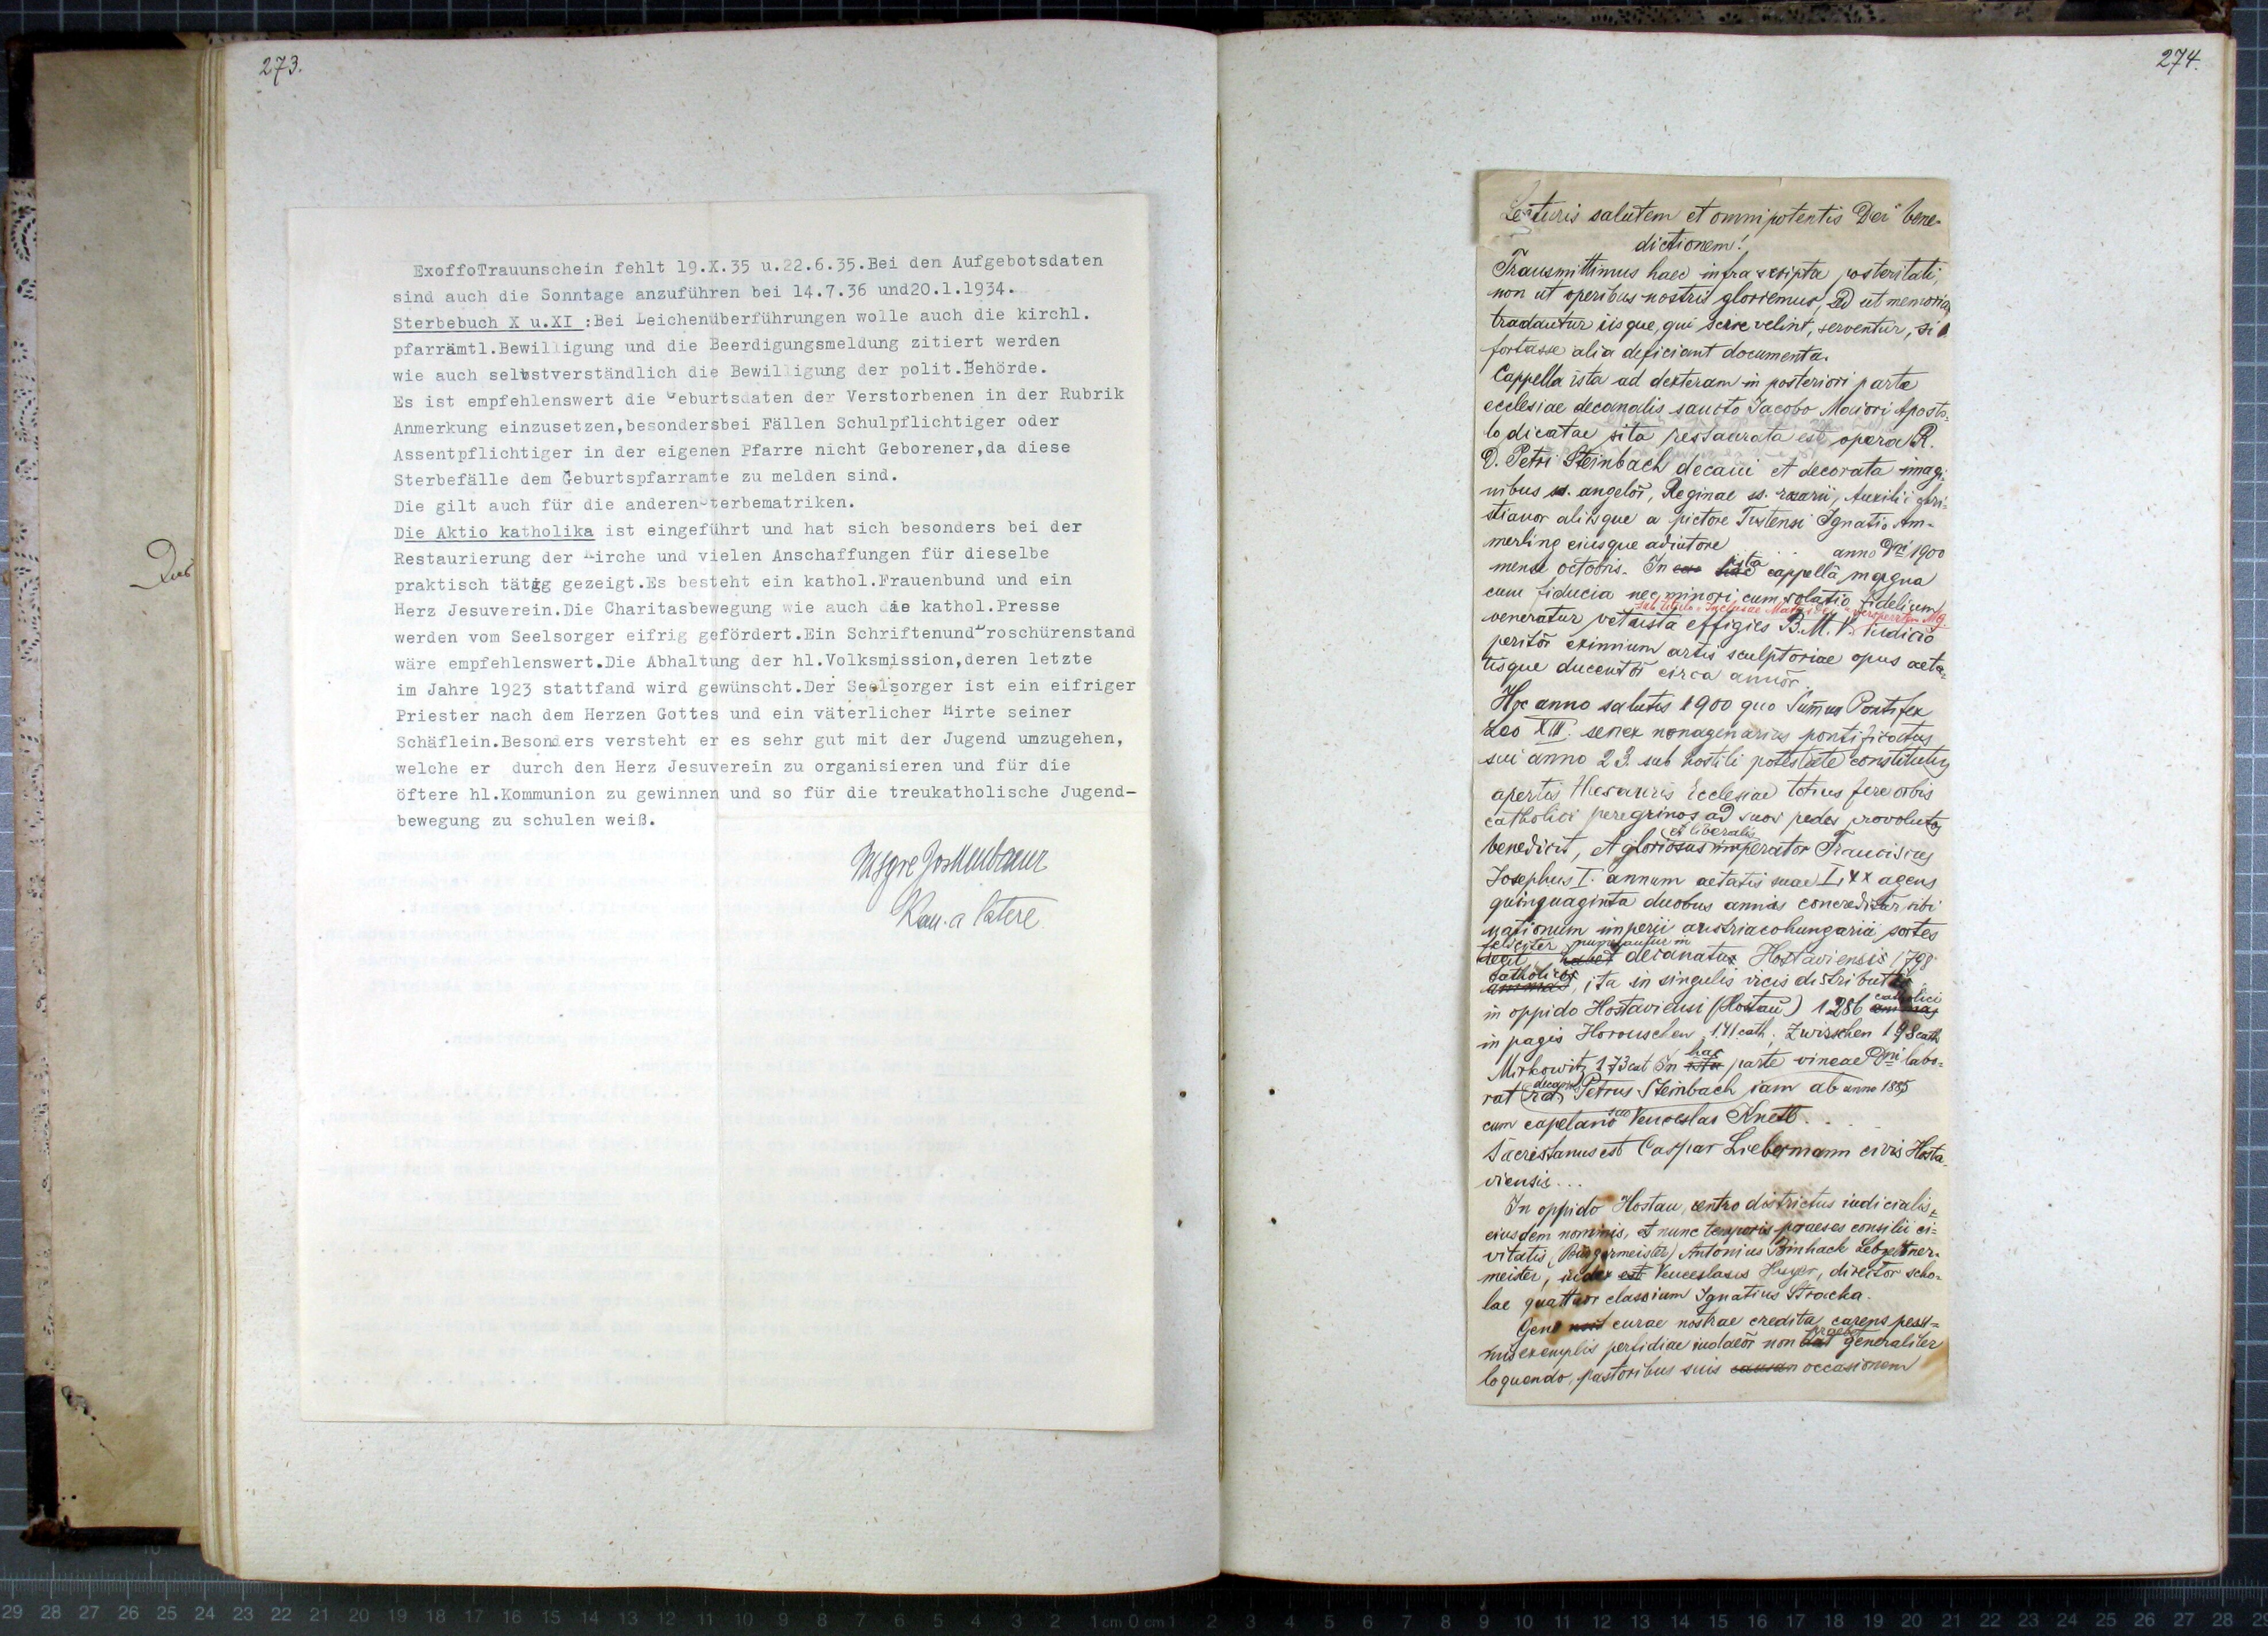 273.
ExoffoTrauunschein fehlt 19.X.35 u.22.6.35.Bei den Aufgebotsdaten
sind auch die Sonntage anzuführen bei 14.7.36 und20.1.1934.
Sterbebuch X u.XI :Bei Leichenüberführungen wolle auch die kirchl.
pfarrämtl.Bewilligung und die Beerdigungsmeldung zitiert werden
wie auch selbstverständlich die Bewilligung der polit.Behörde.
Es ist empfehlenswert die Geburtsdaten der Verstorbenen in der Rubrik
Anmerkung einzusetzen,besondersbei Fällen Schulpflichtiger oder
Assentpflichtiger in der eigenen Pfarre nicht Geborener,da diese
Sterbefälle dem Geburtspfarramte zu melden sind.
Die gilt auch für die anderen Sterbematriken.
Die Aktio katholika ist eingeführt und hat sich besonders bei der
Restaurierung der Kirche und vielen Anschaffungen für dieselbe
praktisch tätig gezeigt.Es besteht ein kathol.Frauenbund und ein
Herz Jesuverein.Die Charitasbewegung wie auch die kathol.Presse
werden vom Seelsorger eifrig gefördert.Ein SchriftenundBroschürenstand
wäre empfehlenswert.Die Abhaltung der hl.Volksmission,deren letzte
im Jahre 1923 stattfand wird gewünscht.Der Seelsorger ist ein eifriger
Priester nach dem Herzen Gottes und ein väterlicher Hirte seiner
Schäflein.Besonders versteht er es sehr gut mit der Jugend umzugehen,
welche er durch den Herz Jesuverein zu organisieren und für die
öftere hl.Kommunion zu gewinnen und so für die treukatholische Jugend-
bewegung zu schulen weiß.
Kan. a latere
274.
Lecturis salutem et omnipotentis Dei bene-
dictionem!
Transmittimus haec infra scripta posteritati,
non ut operibus nostris gloriemur, sed ut memoriae
tradantur iisque, qui scire velint, serventur, si
fortasse alia deficiant documenta.
Cappella ista ad dexteram in posteriori parte
ecclesiae decanalis sancto Jacobo Maiori Aposto-
lo dicatae sita restaurata est opera R.
D. Petri Steinbach decani et decorata imagi-
nibus ss. angelor, Reginae ss. rosarii, Auxilii chri-
stianor aliisque a pictore Tustensi Ignatio Am-
merling eiusque adiutore anno Dni 1900
mense octobris. In ista cappella magna
cum fiducia nec minori cum solatio fidelium
veneratur vetusta effigies B.M.V. iudicio
peritor eximium artis sculptoriae opus aeta-
tisque ducentor circa annor
Hoc anno salutis 1900 quo Summus Pontifex
Leo XIII. senex nonagenarius pontificatus
sui anno 23. sub hostili potestate constitutus
apertis thesauris Ecclesiae totius fere orbis
catholici peregrinos ad suos pedes provolutos
benedicit, et gloriosus et liberalis imperator Franciscus
Josephus I. annum aetatis suae LXX agens
quinquaginta duobus annis concreditar sibi
nationum imperii austriacohungarici sortes
feliciter regit, numerantur in decanatus Hostaviensis 1798
catholici, ita in singulis vicis distributi
in oppido Hostaviensi (Hostau) 1286 catholici
in pagis Horouschen 141 cath. Zwirschen 198 cath
Mirkowitz 173 cat In hac parte vineae Dni labo-
rat decanus Petrus Steinbach iam ab anno 1885
cum capelano suo Venceslao Knettl . . .
Sacristanus est Caspar Liebermann civis Hosta-
viensis . . .
In oppido Hostau, centro districtus iudicialis
eiusdem nominis, est nunc temporis praeses consilii ci-
vitatis (Bürgermeister) Antonius Binhack Lebzeltner-
meister, iudex est Venceslaus Huyer, director scho-
lae quattuor classium Ignatius Stracka.
Gens curae nostrae credita, carens pessi-
mis exemplis perfidiae iudaeor non praebet generaliter
loquendo, pastoribus suis causam occasionem